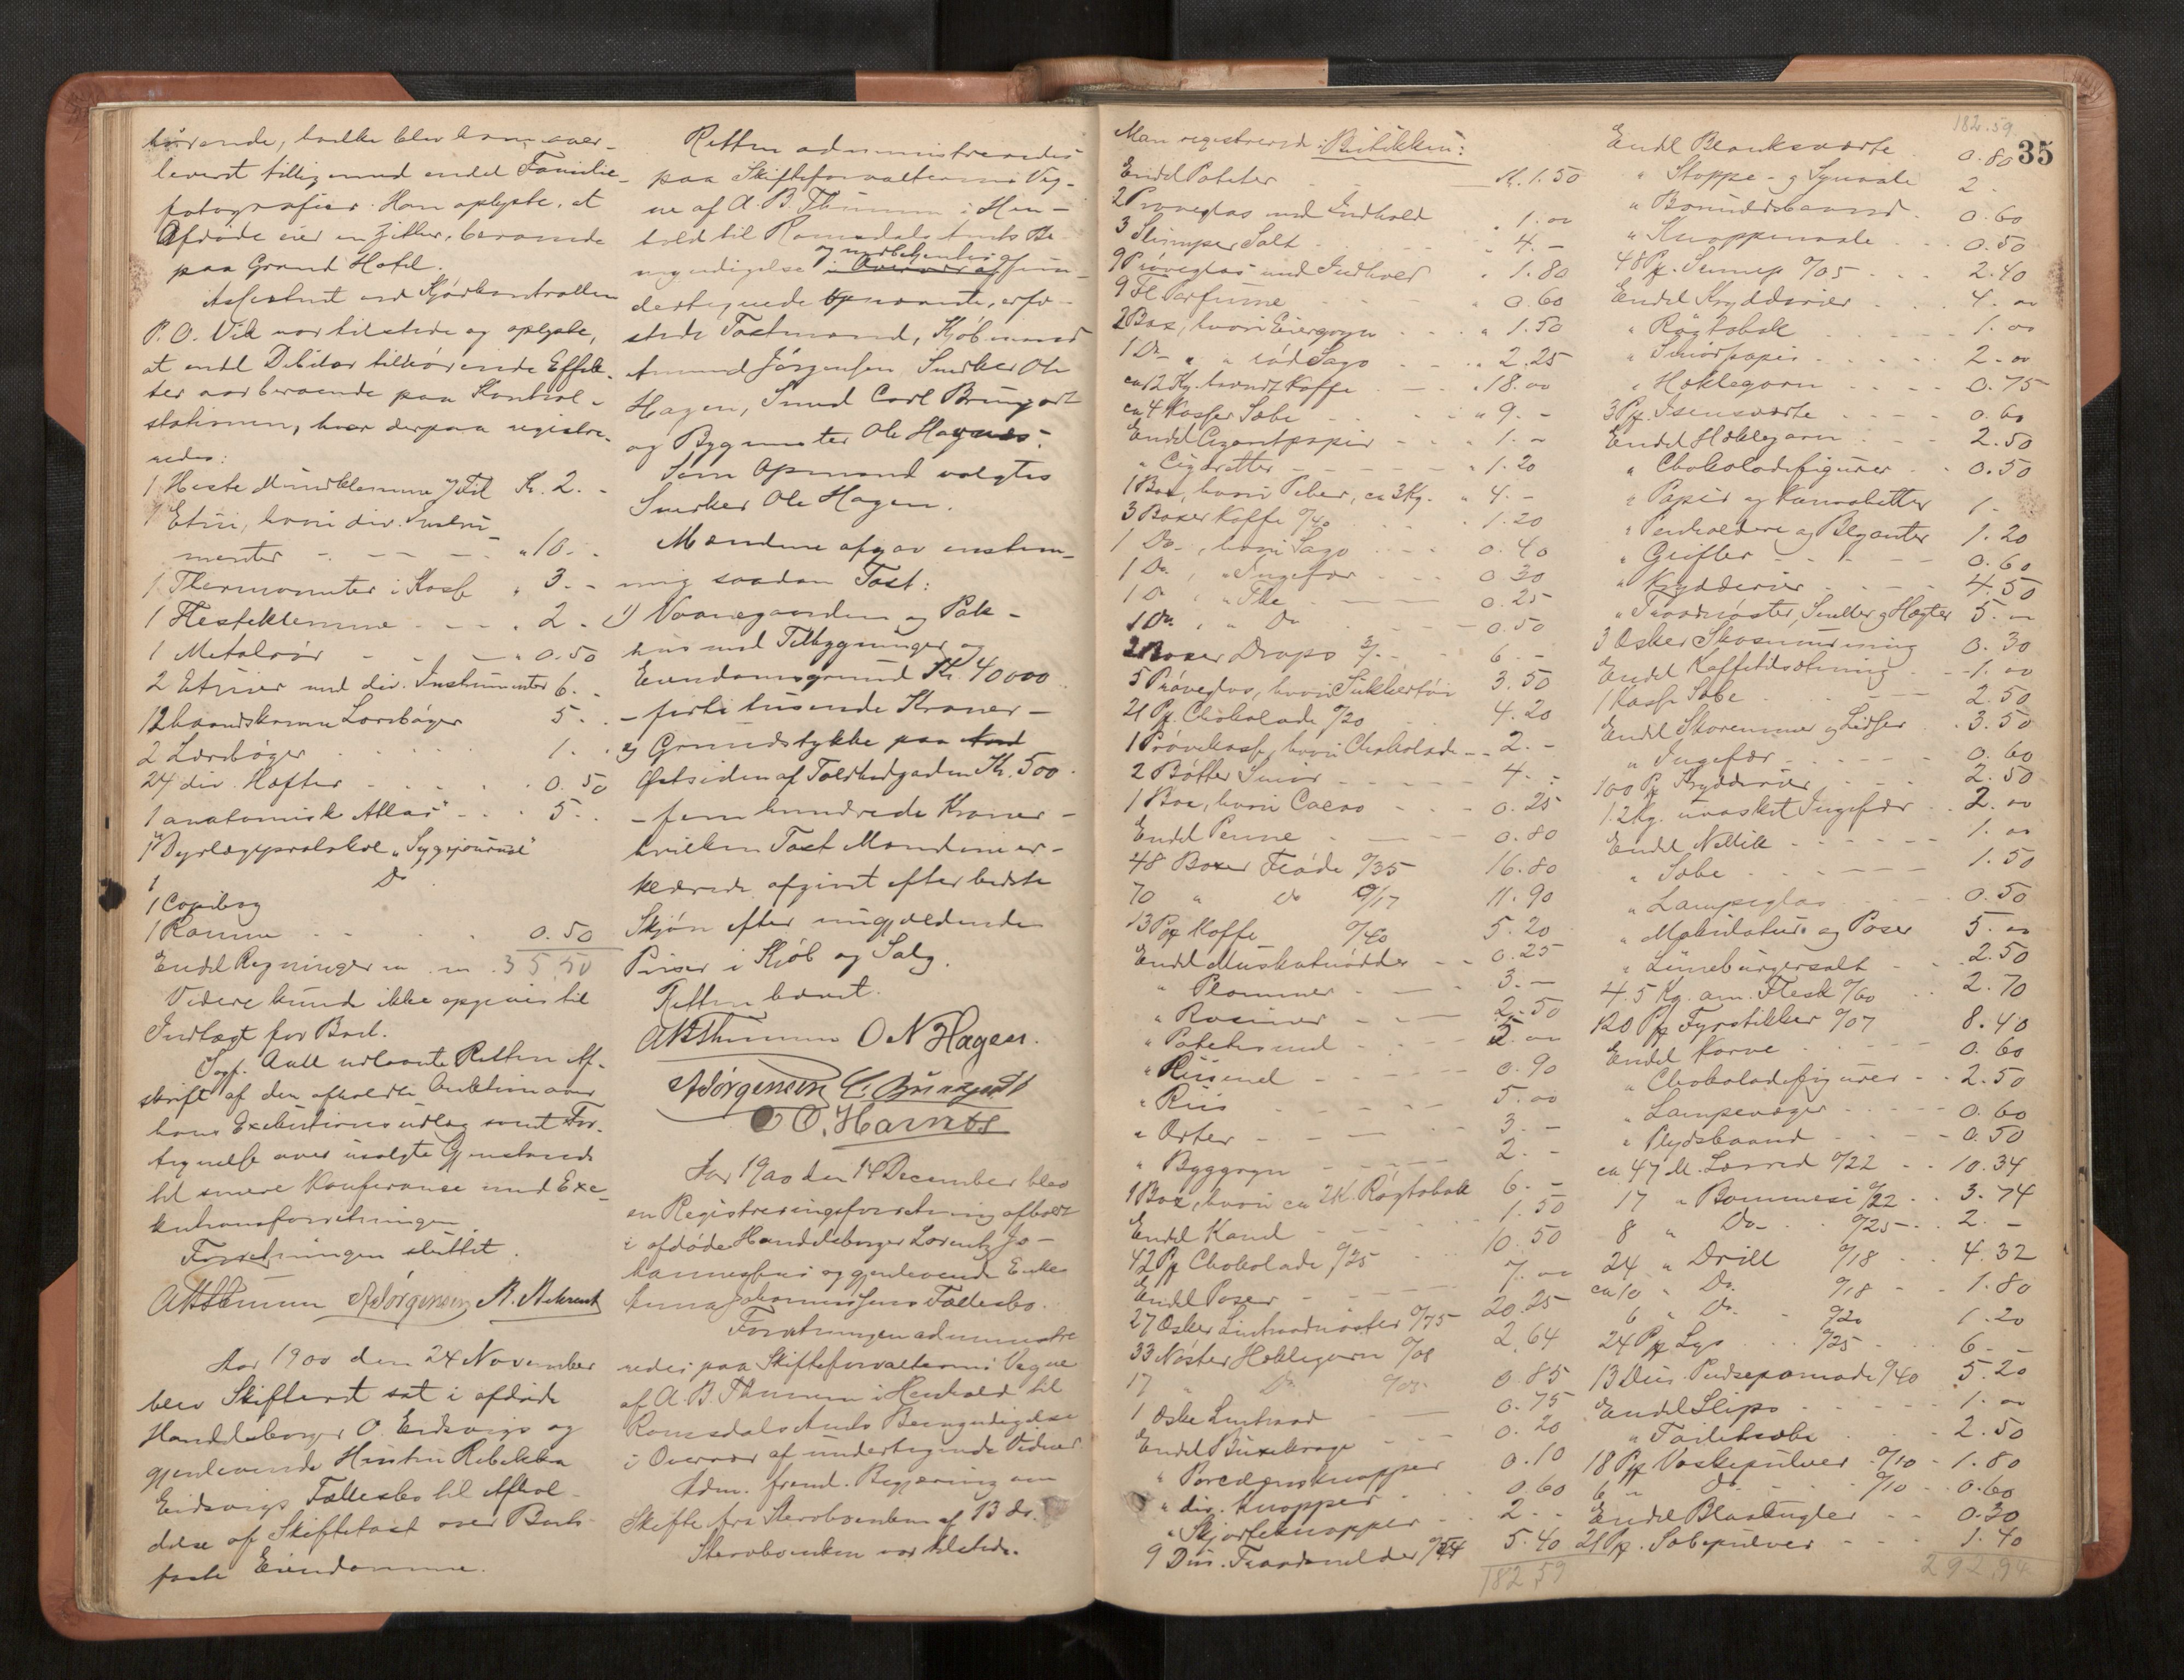 hörende, hvilke blev ham over-
leveret tilligemed endel Familie-
fotografier. Han oplyste, at
Afdöde eier en Zither, beroende
paa Grand Hotel.
Assistent ved Kjödkontrollen
P. O. Vik var tilstede og oplyste,
at endel Debitor tilhörende Effek-
ter var beroende paa Kontrol-
stationen, hvor derpaa registre-
redes:
1 Heste Mundklemme 7 Fil Kr. 2. -
1 Etui, hvori div. Instru-
menter - - - - " 10. -
1 Thermometer i Kasse " 3. -
1 Hesteklemme - - - " 2. -
1 Metalrör - - - " 0.50
2 Etuier med div. Instrumenter 6. -
12 haandskrevne Lærebøger 5. -
2 Lærebøger 1. -
24 div. Hæfter 0.50
1 anatomisk Atlas - - 5. -
1 Dyrlægeprotokol "Sygejournal"
1 Do
1 Copibog
1 Ramme - - 0.50
Endel Regninger m. m. 35,50
Videre kunde ikke opgives til
Indtægt for Boet.
Sagf. Aall udlaante Retten Af-
skrift af den afholdte Auktion over
hans Exekutionsudlæg samt For-
tegnelse over usolgte Gjenstande
til senere Konferanse med Exe-
kutionsforretningen.
Forretningen sluttet.
A B Thumm AJörgensen
Aar 1900 den 24 November
blev Skifteret sat i afdöde
Handelsborger O. Eidsvigs og
gjenlevende Hustru Rebekka
Eidsvigs Fællesbo til Afhol-
delse af Skiftetaxt over Boets
faste Eiendomme.
Retten administreredes
paa Skifteforvalterens Veg-
ne af A. B. Thumm i Hen-
hold til Romsdals Amts Be-
og medbetjentes af
myndigelse i Overvær af fun-
dertegnede opnævnte, erfor-
stede Taxtmænd, Kjöbmand
Amund Jörgensen, Snedker Ole
Hagen, Smed Carl Bruugart
og Bygmester Ole Harnes.
Som Opmand valgtes
Snedker Ole Hagen.
Mændene afgav enstem-
mig saadan Taxt:
1) Vaaningsgaarden og Pak-
hus med Tilbygninger og
Eiendomsgrund Kr. 40000
- firti tusende Kroner -
2) Grundstykke paa
Østsiden af Toldbodgaden Kr. 500
- fem hundrede Kroner -
hvilken Taxt Mændene er-
klærede afgivet efter bedste
Skjøn efter nugjældende
Priser i Kjöb og Salg.
Retten hævet.
ABThumm O N Hagen.
AJörgensen C. Bruugart
O. Harnes
Aar 1900 den 14 December blev
en Registreringsforretning afholdt
i afdöde Handelsborger Lorentz Jo-
hannessens og gjenlevende Enke
Anna Johannessens Fællesbo.
Forretningen administre-
redes paa Skifteforvalterens Vegne
af A. B. Thumm i Henhold til
Romsdals Amts Bemyndigelse
i Overvær af undertegnede Vidner
Adm. freml. Begjæring om
Skifte fra Stervboenken af 13 ds.
Stervboenken var tilstede.
Man registrerede i Butikken:
Endel Poteter - - Kr. 1.50
2 Pröveglas med Indhold " 1.00
3 Stumper Salt " 4. -
9 Pröveglas med Indhold " 1.80
9 Fl. Parfume - - " 0.60
2 Box, hvori Eiergryn - - " 1.50
1 Do " " röd Sago - - " 2.25
ca 12 Kg. brændt Kaffe - " 18.00
ca 4 Kasser Sæbe - - " 9. -
Endel Cigaretpapir - - - 1. -
" Cigaretter - - - - - " 1.20
1 Box, hvori Peber, ca 3 Kg. " 4. -
3 Boxer Kaffe %40 " 1.20
1 Do , hvori Sago - - - 0.40
1 Do , " Ingefær - - - 0.30
1 Do , " The - - 0.25
1 Do , " Do - - - 0.50
2 Boxer Drops 3/- - - 6. -
5 Pröveglas, hvori Sukkertöi 3.50
21 Pk. Chokolade %20 4.20
1 Prövekasse, hvori Chokolade - - 2. -
2 Bötter Smör - - - 4. -
1 Box, hvori Cacao - - 0.25
Endel Penne - - 0.80
48 Boxer Fløde %35 16.80
70 " Do %17 11.90
13 Pk Kaffe %40 5.20
Endel Muskatnödder - - 0.25
" Plommer - - 3. -
" Rosiner - - 2.50
" Potetesmel - - 5.00
" Riismel - - - 0.90
" Riis - - - 5.00
" Erter - - - 3. -
" Byggryn - - - 2. -
1 Box, hvori ca 2 K. Røgtobak 6. -
Endel Kand - - - 1.50
42 Pk Chokolade %25 10.50
Endel Poser - - - 7.00
27 Æsker Lintraadnøster %75 20.25
33 Nøster Heklegarn %08 2.64
17 " Do %05 0.85
1 Æske Lintraad - - 0.75
Endel Buxekroge - - 0.20
" Porcelænsknapper 0.10
" div. Knapper - 0.60
" Skjorteknapper - 2. -
9 Dus. Traadsnelder 5.40
182,59
182.59 35
Endel Blanksværte 0.80
" Stoppe- og Synaale 2 -
" Bomuldsbaand - 0.60
" Knappenaale - - 0.50
48 Pk. Sennep %05 - - 2.40
Endel Krydderier - - - 4.00
" Røgtobak - - - 1.00
" Smörpapir - - - 2.00
" Heklegarn - - - 0.75
3 Pk. Isensværte - - - 0.60
Endel Heklegarn - - - 2.50
" Chokoladefigurer - - 0.50
" Papir og Konvolutter 1 -
" Penholdere og Blyanter 1.20
" Grifler - - - - 0.60
" Krydderier - - - 4.50
" Traadnøster, Smelter og Hægter 5. -
3 Æsker Skosmurning 0.30
Endel Kaffetilsætning - - 1.00
1 Kasse Sæbe - - - 2.50
Endel Skoremmer og Lidser - 3.50
" Ingefær - - - - 0.60
100 Pk Krydderier - - 2.50
1.2 Kg. uvasket Ingefær - 2.00
Endel Nellik - - - - 1.00
" Sæbe - - - - 1.50
" Lampeglas - - - 0.50
" Makulatur og Poser 5.00
" Lüneburgersalt - - 2.50
4.5 Kg. am. Flesk %60 - - 2.70
120 Pk Fyrstikker %07 8.40
Endel Korve - - - 0.60
" Chokoladefigurer - - 2.50
" Lampevæger - - - 0.60
" Plydsbaand - - - 0.50
ca 47 M. Lærred %22 - - 10.34
17 " Bommesi %22 - - 3.74
8 " Do - %25 - - 2. -
24 " Drill %18 - - 4.32
ca 10 " Do. %18 - - 1.80
6 " Do. %20 1.20
24 Pk Lys - - %25 - - 6. -
13 Dus. Pudsepomade %40 5.20
Endel Slips - - - - 1.00
" Toiletsæbe - - - 2.50
18 Pk Vaskepulver %10 - 1.80
6 " Do. - - %10 - 0.60
Endel Blaakugler - - 0.30
21 Pk. Sæbepulver - - - 1.40
292,94